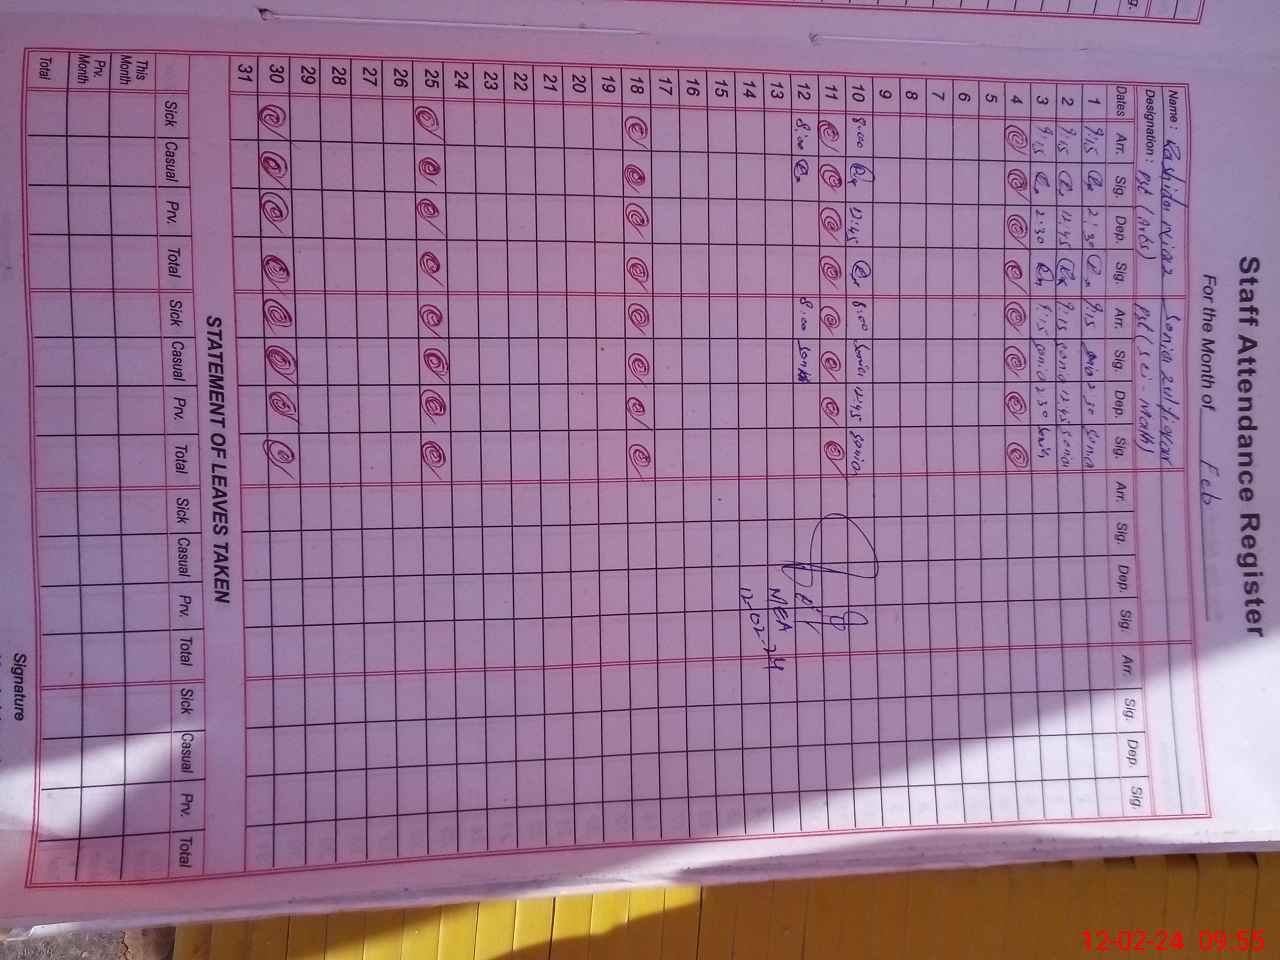 Staff Attendance Register
For the Month of Feb
Name: Rashida Niaz Sonia Zulfiqar
Designation: Pst (Arts) Pst (Sci-Math)
Dates Arr. Sig. Dep. Sig. Arr. Sig. Dep. Sig. Arr. Sig. Dep. Sig. Arr. Sig. Dep. Sig.
1 9:15 2:30 9:15 Sonia 2:30 Sonia
2 9:15 12:45 9:15 Sonia 12:45 Sonia
3 9:15 2:30 9:15 Sonia 2:30 Sonia
4
5
6
7
8
9
10 8:00 12:45 8:00 Sonia 12:45 Sonia
11
12 8:00 8:00 Sonia
13 MEA
14 12-02-24
15
16
17
18
19
20
21
22
23
24
25
26
27
28
29
30
31
STATEMENT OF LEAVES TAKEN
Sick Casual Prv. Total Sick Casual Prv. Total Sick Casual Prv. Total Sick Casual Prv. Total
This Month
Prv. Month
Total
Signature
12-02-24 09:55